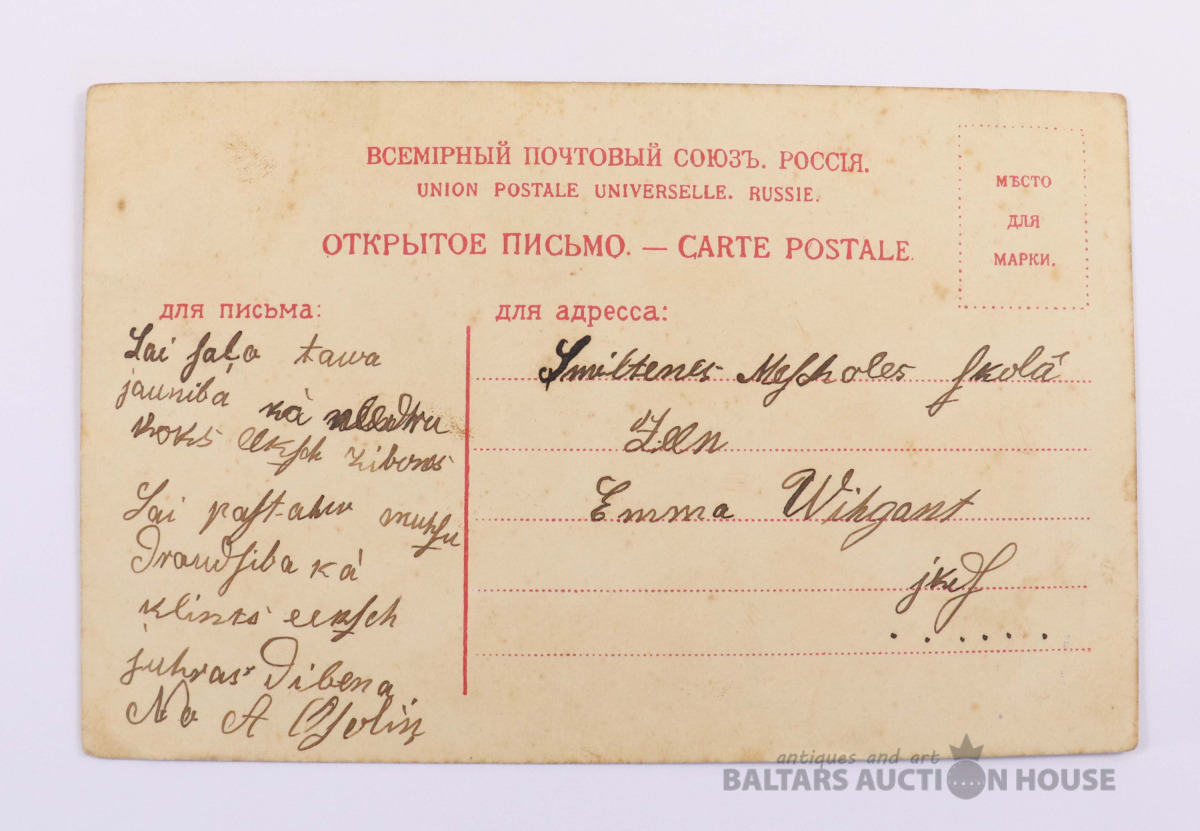 ВСЕМІРНЫЙ ПОЧТОВЫЙ СОЮЗЪ. РОССІЯ.
UNION POSTALE UNIVERSELLE. RUSSIE.
ОТКРЫТОЕ ПИСЬМО. — CARTE POSTALE.
МѢСТО
ДЛЯ
МАРКИ.
для письма:
Lai saļo tawa
jauniba kà
koks eeksch
Lai pastahw muhsu
draudsiba kà
klints eeksch
juhras dibena
No A Osoliņ
для адресса:
Smiltenes Mescholes skolâ
Zeen
Emma Wihgant
jkdſ
antiques and art
BALTARS AUCTION HOUSE